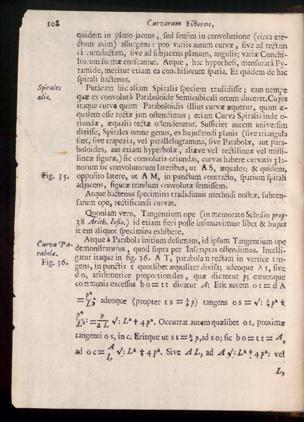 108 Curvarum Ectheses,
quidem in plano jacens, sed sensim in convolutione (circa erectum
axim) assurgens: pro variis autem curvæ, sive ad rectam
sic conductim, sive ad subjacens planum, angulis; variæ
formæ enascantur. Atque, hac hypothesi, mensurata Pyramide,
metitur etiam ea conchiliorum spatia. Et quidem de hac
spirali hactenus.
Spirales
aliæ.
Puticam hic aliam Spiralis speciem tradidisse; eam nempe
quæ ex convoluta Paraboloide Semicubicali ortum duceret. Cujus
itaque curva quam Paraboloidis illius curvæ æquetur, quam
quidem esse rectæ jam ostendimus; etiam Curva Spiralis inde
æqualis rectæ ostenderetur. Sufficiet autem universim
dixisse, Spirales omne genus, ex hujusmodi planis (sive triangula
sint, sive trapezia, vel parallelogramma, sive Parabolæ, aut paraboloides,
aut etiam hyperbolæ, aliæve vel rectilineæ vel
figuræ,) sic convolutis oriundas, curvas habere curvatis planorum
sic convolutorum lateribus, ut AS, æquales; & quidem,
Fig. 35.
opposito latere, ut AM, in punctum contracto, spatium spirali
adjacens, figuræ nondum convolutæ semissem.
Atque hactenus specimina tradidimus methodi nostræ, subtensarum
ope, rectificandi curvas.
Quoniam vero, Tangentium ope (in memorato Scholio prop.
38 Arith. Infin.) id etiam fieri posse insinuavimus: libet & hujus
rei aliquot specimina exhibere.
Curva Parabolæ.
Fig. 36.
Atque à Parabola initium desumam, id ipsum Tangentium ope
demonstraturus, quod supra per Inscriptas ostendimus. Intelligatur
itaque in fig. 36. A T, parabolam rectam in vertice tangens,
in punctis t quotlibet æqualiter divisa; adeoque A t, sive
d o, arithmetice proportionales, quæ dicatur p; earumque
communis excessus b o = t t dicatur A: Erit autem o t = d A
= p²/L; adeoque (propter t s = ½ p) tangens o s = √: ¼ p² +
p⁴/L²: = p/2L √: L² + 4 p². Occurrat autem quælibet o t, proximæ
tangenti o s, in c. Eritque ut s t = ½ p, ad s o; sic b o = t t = A,
ad o c = A/L √: L² + 4 p². Sive A L, ad A √: L² + 4 p²: vel
L,